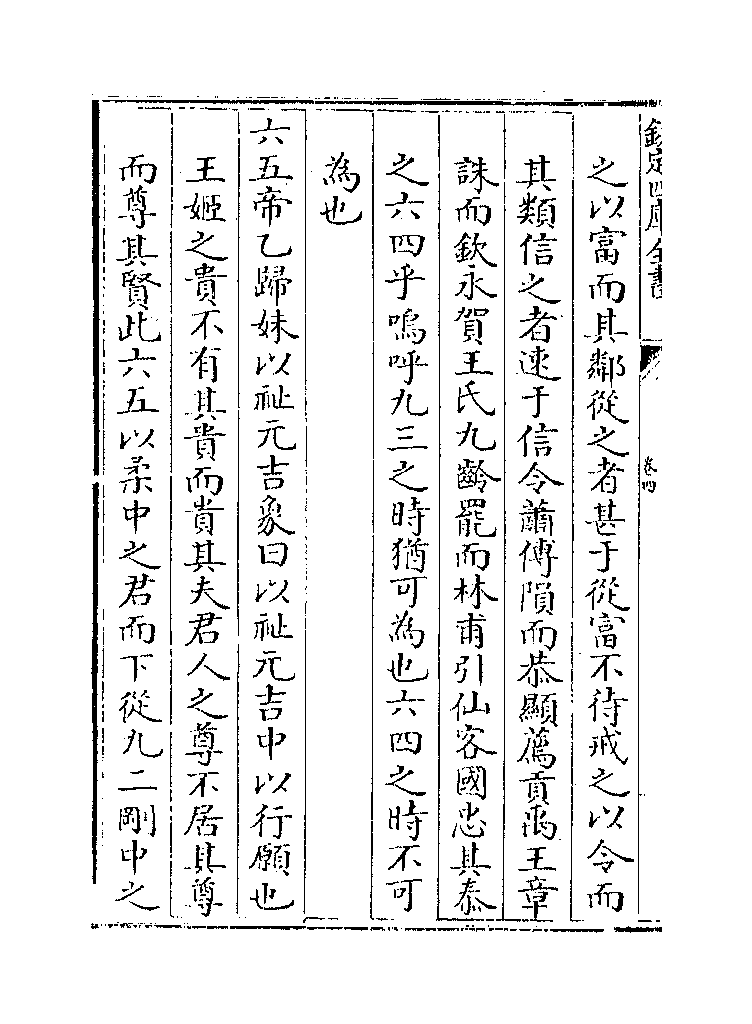 欽定四庫全書
卷四
之以富而其鄰從之者甚于從富不待戒之以令而
其類信之者速于信令蕭傅隕而恭顯薦貢禹王章
誅而欽永賀王氏九齡罷而林甫引仙客國忠其泰
之六四乎嗚呼九三之時猶可為也六四之時不可
為也
六五帝乙歸妹以祉元吉象曰以祉元吉中以行願也
王姬之貴不有其貴而貴其夫君人之尊不居其尊
而尊其賢此六五以柔中之君而下從九二剛中之